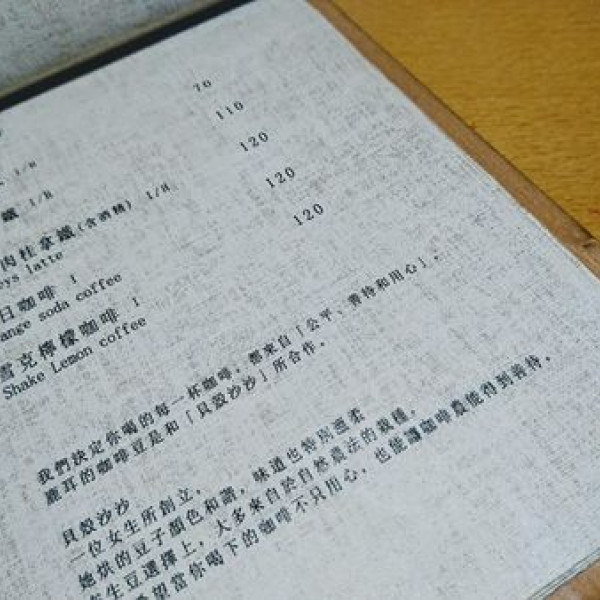 70
I/H 110
鐵 I/H 120
肉桂拿鐵(含酒精) I/H 120
eys latte
日咖啡 I 120
ange soda coffee
雪克檸檬咖啡 I
Shake Lemon coffee
我們決定你喝的每一杯咖啡,都來自「公平、善待和用心」,
鹿耳的咖啡豆是和「貝殼沙沙」所合作。
貝殼沙沙
一位女生所創立,
她烘的豆子顏色和諧,味道也特別溫柔
在生豆選擇上,大多來自於自然農法的栽種,
希望當你喝下的咖啡不只用心,也能讓咖啡農能得到善待。